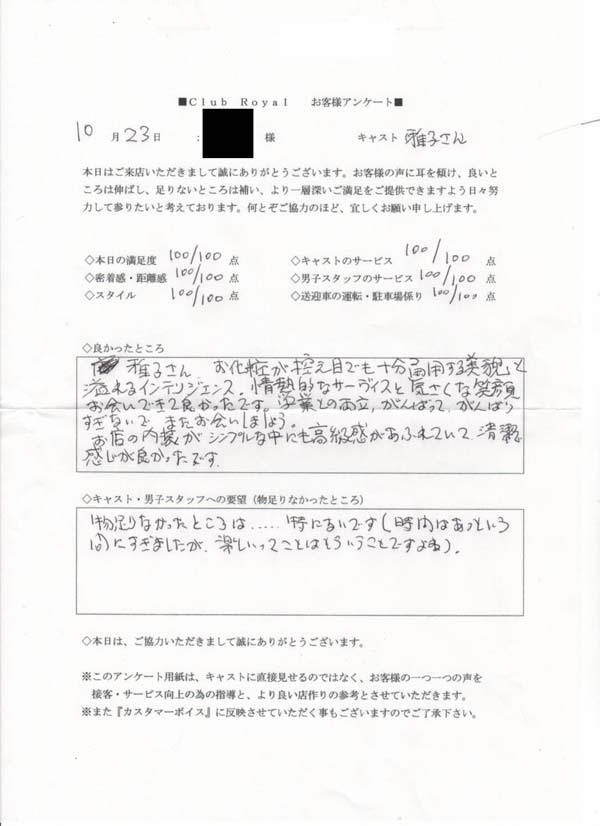 ■Club Royal お客様アンケート■
10月23日 : 様 キャスト 雅子さん
本日はご来店いただきまして誠にありがとうございます。お客様の声に耳を傾け、良いと
ころは伸ばし、足りないところは補い、より一層深いご満足をご提供できますよう日々努
力して参りたいと考えております。何とぞご協力のほど、宜しくお願い申し上げます。
◇本日の満足度 100/100 点 ◇キャストのサービス 100/100 点
◇密着感・距離感 100/100 点 ◇男子スタッフのサービス 100/100 点
◇スタイル 100/100 点 ◇送迎車の運転・駐車場係り 100/100 点
◇良かったところ
雅子さん、お化粧が控え目でも十分通用する美貌と
溢れるインテリジェンス。情熱的なサーヴィスと気さくな笑顔
お会いできて良かったです。学業との両立、がんばって、がんばり
すぎないで、またお会いしましょう。
お店の内装が シンプルな中にも高級感があふれていて、清潔
感じが良かったです。
◇キャスト・男子スタッフへの要望（物足りなかったところ）
物足りなかったところは.....特にないです(時間はあっという
間にすぎましたが、楽しいってことはそういうことですよね)。
◇本日は、ご協力いただきまして誠にありがとうございます。
※このアンケート用紙は、キャストに直接見せるのではなく、お客様の一つ一つの声を
接客・サービス向上の為の指導と、より良い店作りの参考とさせていただきます。
※また『カスタマーボイス』に反映させていただく事もございますのでご了承下さい。